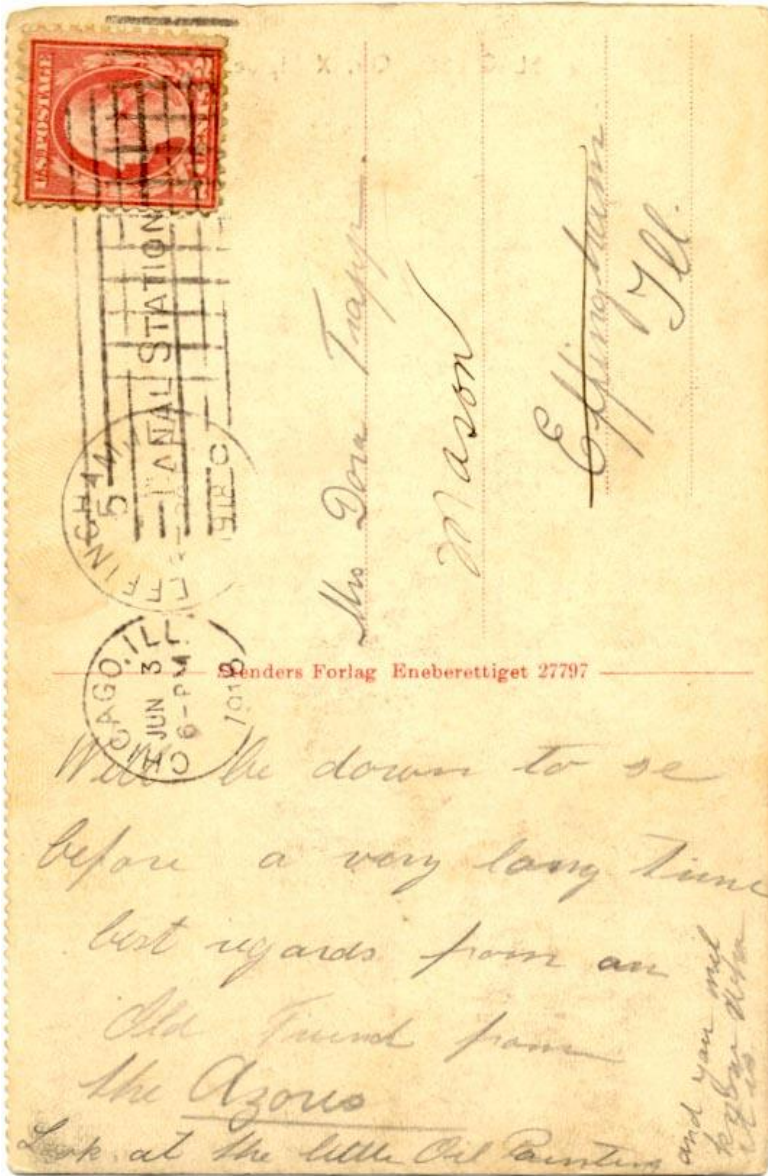 U.S. POSTAGE
2 CENTS 2
CANAL STATION
EFFINGHAM
5 AM
1918
CHICAGO, ILL.
JUN 3
6-PM
1918
Mrs Dora Trapp
Mason
Effingham
Ill.
Stenders Forlag Eneberettiget 27797
Will be down to se
before a very long Time
best regards from an
Old Friend from
the Azores
Look at the little Oil Painting
and you will
know who
it is